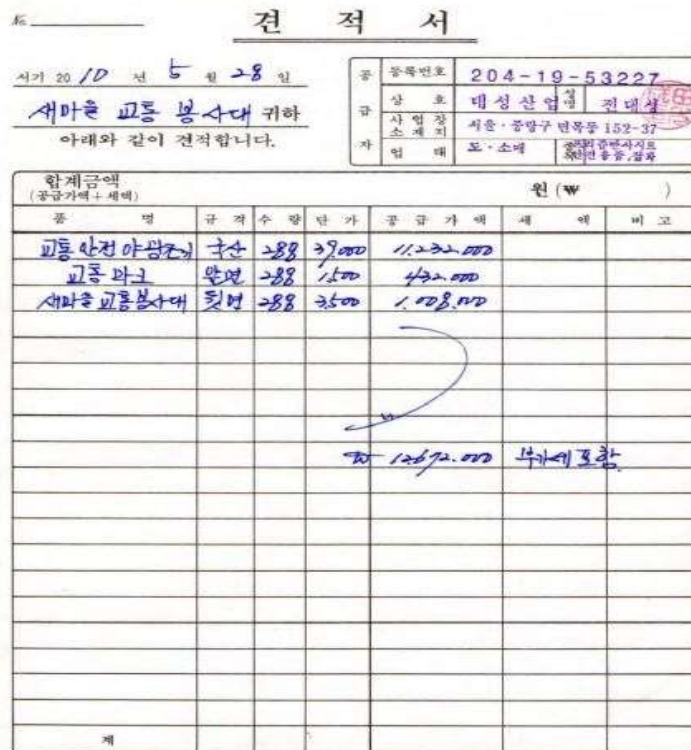 No
견 적 서
서기 2010 년 5 월 28 일
새마을 교통 봉사대 귀하
아래와 같이 견적합니다.
공 급 자
등록번호 204-19-53227
상 호 대성산업 성명 전대성
사업장 소재지 서울·중랑구 면목동 152-37
업 태 도·소매 종목
합계금액 원 (₩ )
(공급가액 + 세액)
품 명 규 격 수 량 단 가 공 급 가 액 세 액 비 고
교통 안전 야광조끼 국산 288 39,000 11,232,000
교통 마크 앞면 288 1,500 432,000
새마을 교통봉사대 뒷면 288 3,500 1,008,000
₩ 12,672,000 부가세 포함
계